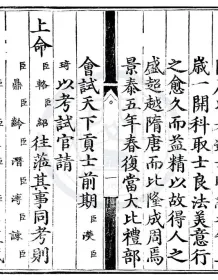 歲一開科取士良法美意行
之愈久而益精以故得人之
盛超越隋唐而比隆成周焉
景泰五年春復當大比禮部
會試天下貢士前期臣濙臣
琦以考試官請
上命臣輅臣紹往蒞其事同考則
臣鼎臣齡臣潛臣溥臣諫